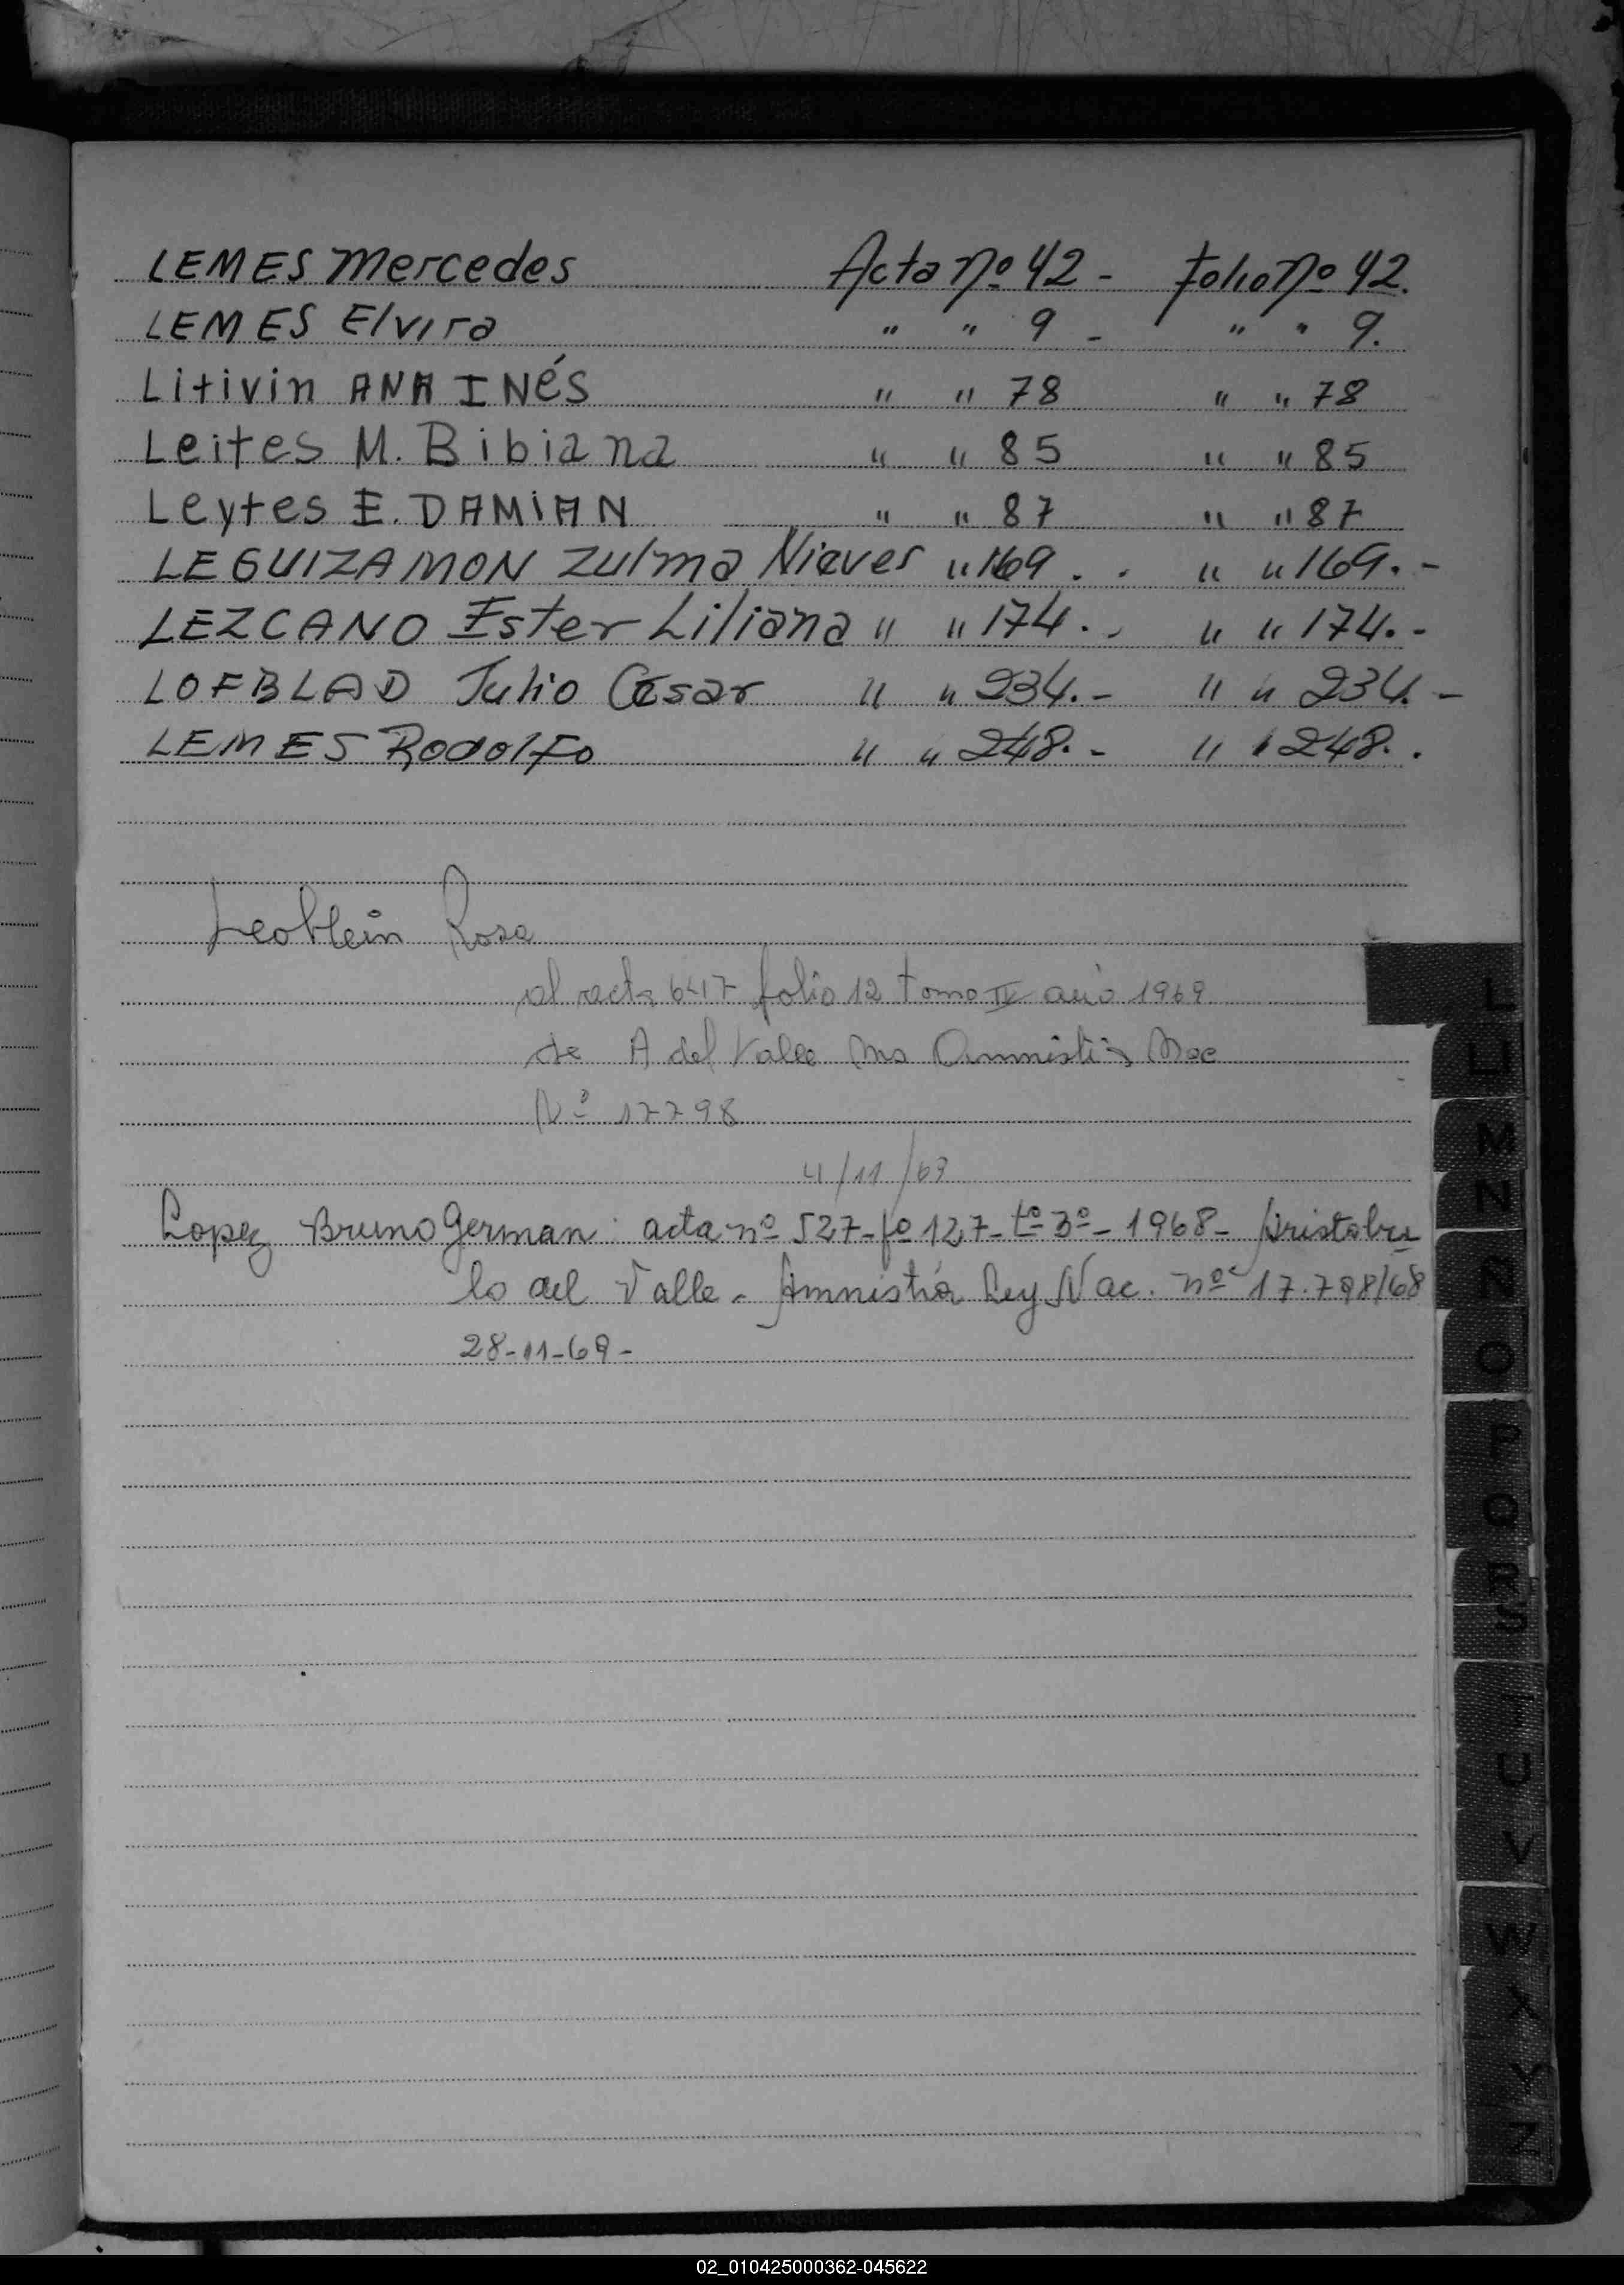 LEMES Mercedes Acta Nº 42 - folio Nº 42.
LEMES Elvira " " 9 - " " 9.
Litivin ANA INÉS " " 78 " " 78
Leites M. Bibiana " " 85 " " 85
Leytes E. DAMIAN " " 87 " " 87
LEGUIZAMON Zulma Nieves " 169 . . " " 169. -
LEZCANO Ester Liliana " " 174. - " " 174. -
LOFBLAD Julio Cesar " " 234. - " " 234. -
LEMES Rodolfo " " 248. - " " 248. .
Rosa
al acta folio 12 tomo IV año 1969
de A del Valle Amnistia Nac
Nº 17798
4/11/69
Lopez Bruno German: acta nº 527-fº 127-tº 3º-1968- Aristobu
lo del Valle. Amnistía Ley Nac. nº 17.798/68
28-11-69-
L
LL
M
N
Ñ
O
P
Q
R
S
T
U
V
W
X
Y
Z
02_010425000362-045622